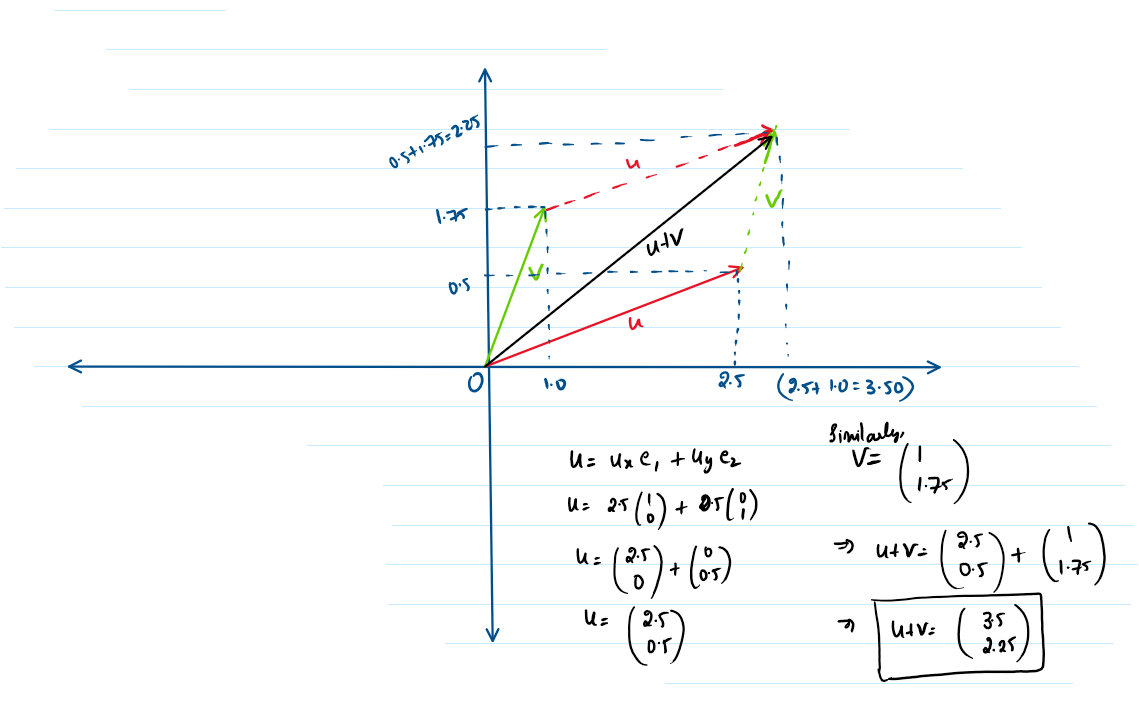 0.5+1.75=2.25
u
1.75
V
u+V
V
0.5
u
O
1.0
2.5
(2.5+ 1.0 = 3.50)
u = uₓ e₁ + u_y e₂
u = 2.5 (1 0) + 0.5 (0 1)
u = (2.5 0) + (0 0.5)
u = (2.5 0.5)
Similarly,
V = (1 1.75)
⇒ u+V = (2.5 0.5) + (1 1.75)
⇒ u+V = (3.5 2.25)